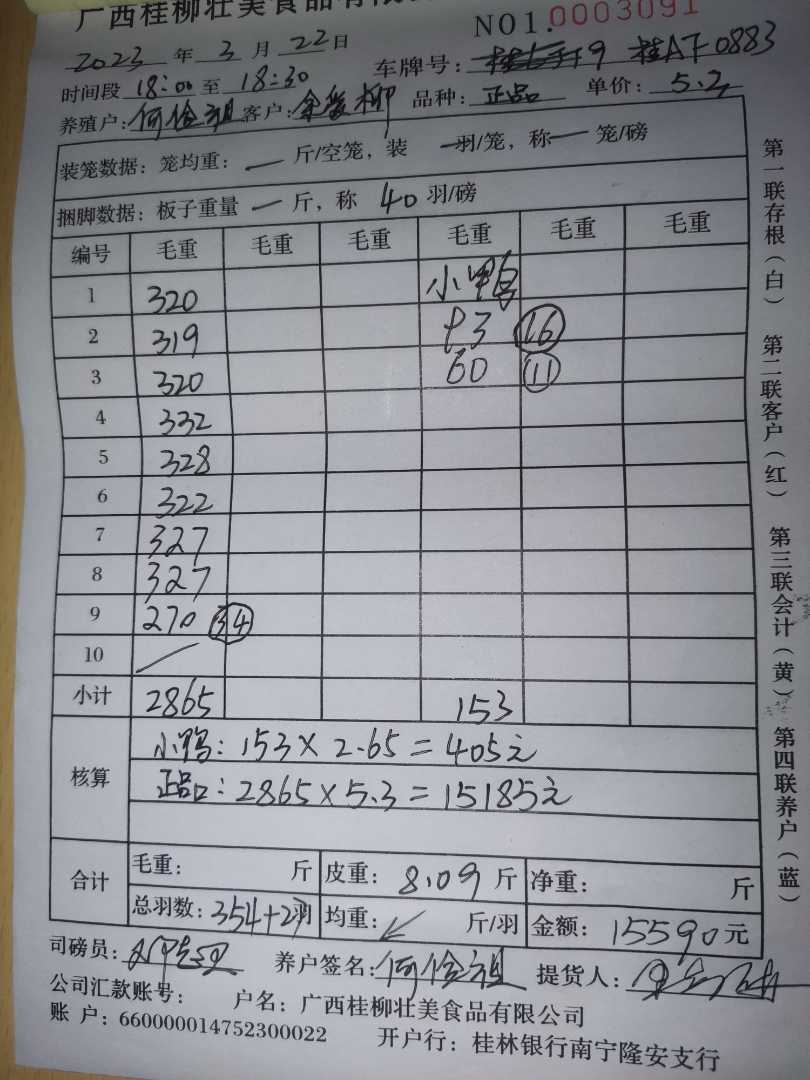 广西桂柳壮美食品有限
NO1.0003091
2023 年 3 月 22 日
车牌号: 桂A F0883
时间段 18:00 至 18:30
养殖户: 何俭祖 客户: 柳 品种: 正品 单价: 5.3
装笼数据: 笼均重: — 斤/空笼, 装 — 羽/笼, 称 — 笼/磅
捆脚数据: 板子重量 — 斤, 称 40 羽/磅
编号 毛重 毛重 毛重 毛重 毛重 毛重
1 320 小鸭
2 319 93 16
3 320 60 11
4 332
5 328
6 322
7 327
8 327
9 270 34
10
小计 2865 153
核算
小鸭: 153 × 2.65 = 405元
正品: 2865 × 5.3 = 15185元
合计
毛重: 斤 皮重: 8.09 斤 净重: 斤
总羽数: 354+27羽 均重: 斤/羽 金额: 15590 元
司磅员: 养户签名: 何俭祖 提货人:
公司汇款账号: 户名: 广西桂柳壮美食品有限公司
账 户: 660000014752300022 开户行: 桂林银行南宁隆安支行
第一联存根(白) 第二联客户(红) 第三联会计(黄) 第四联养户(蓝)